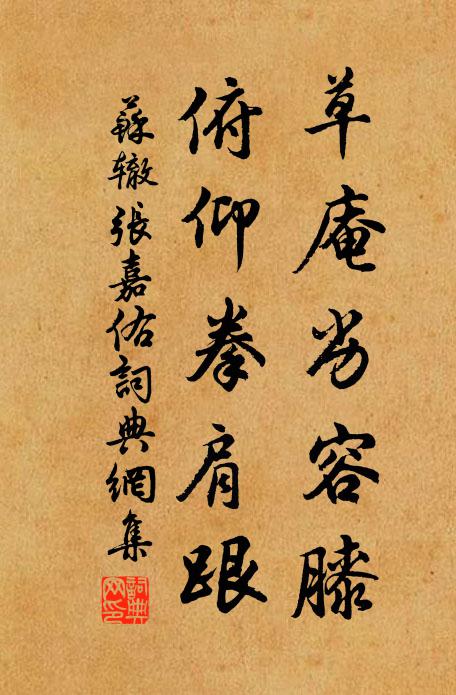 草庵劣容膝
俯仰拳肩跟
蘇辙張嘉佑詞典網集
詞典网印